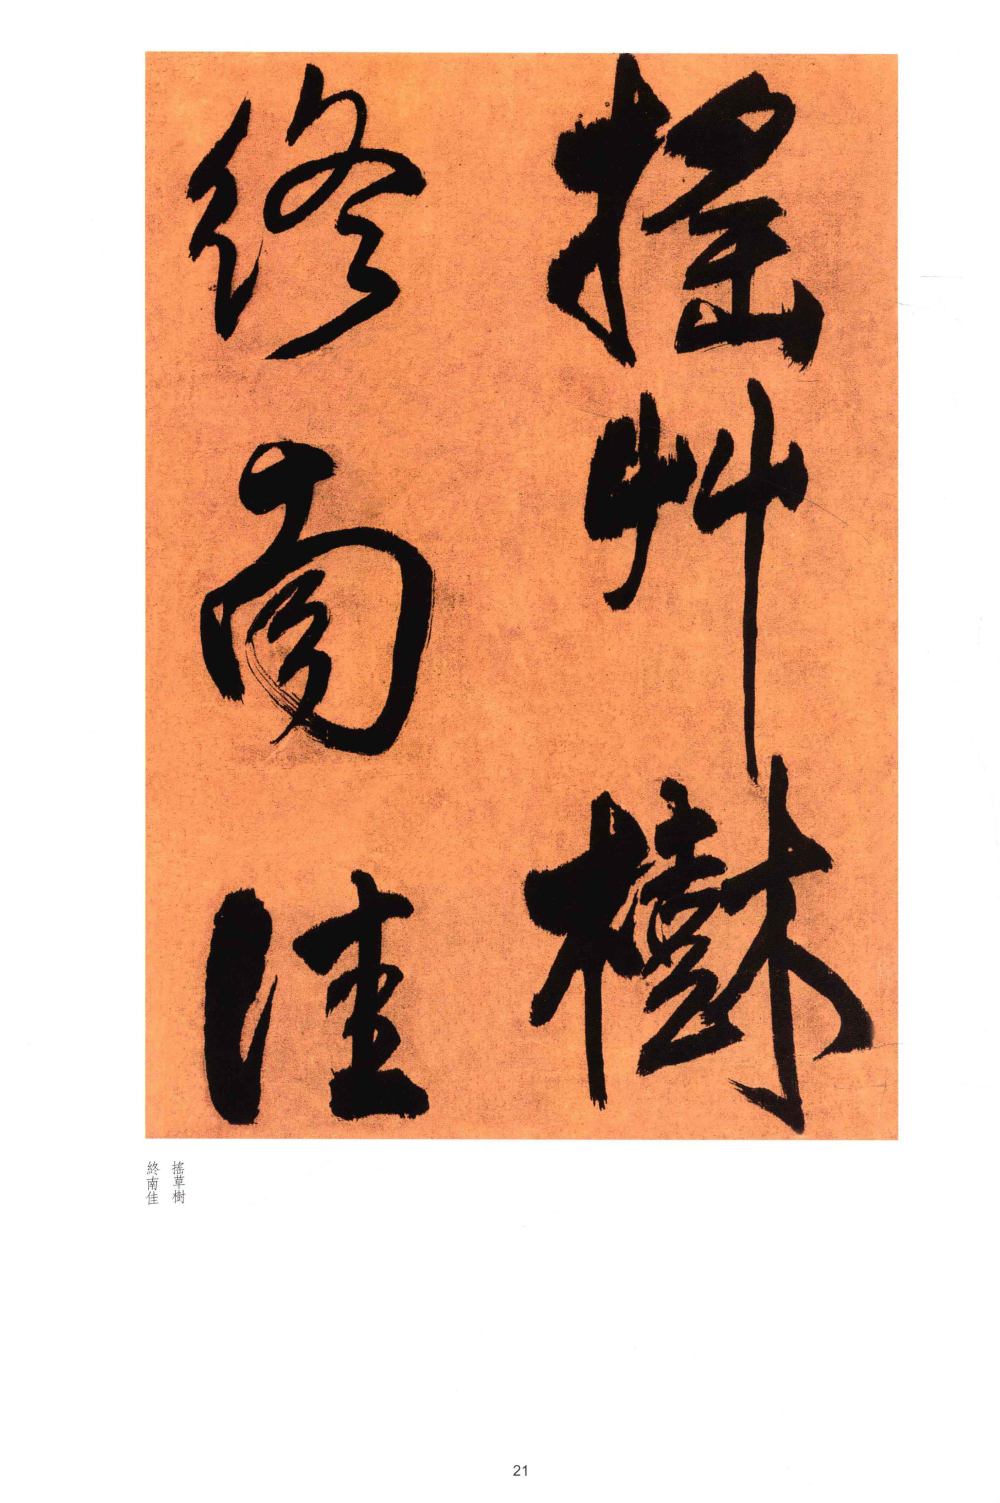 搖艸樹
終南佳
搖草樹
終南佳
21